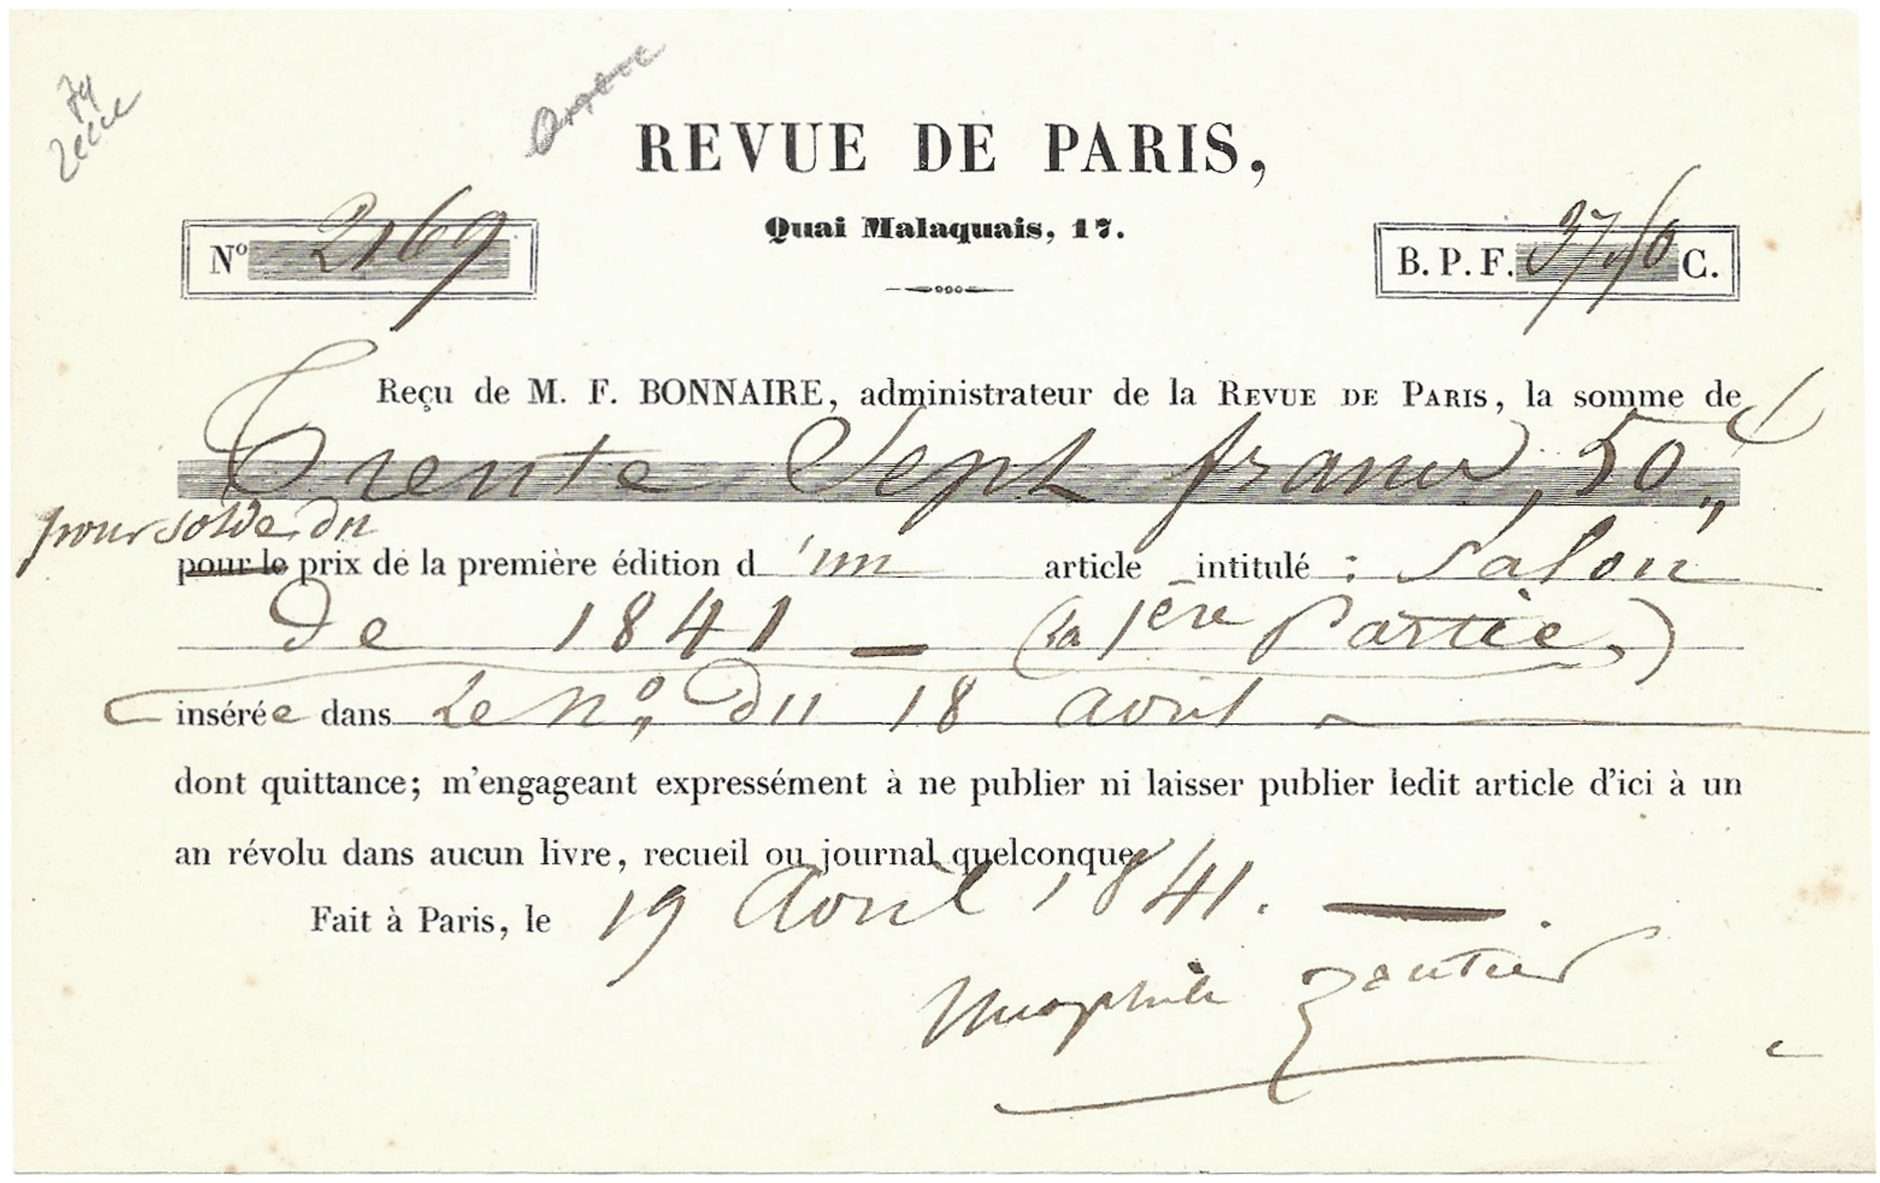 REVUE DE PARIS,
Quai Malaquais, 17.
Nº 2169
B. P. F. 37,50 C.
Reçu de M. F. BONNAIRE, administrateur de la REVUE DE PARIS, la somme de
Trente Sept francs, 50 c
pour solde du
pour le prix de la première édition d'un article intitulé : Salon
de 1841 — (la 1ère Partie,)
insérée dans le Nº, du 18 avril
dont quittance; m'engageant expressément à ne publier ni laisser publier ledit article d'ici à un
an révolu dans aucun livre, recueil ou journal quelconque.
Fait à Paris, le 19 avril 1841. —
Theophile Gautier